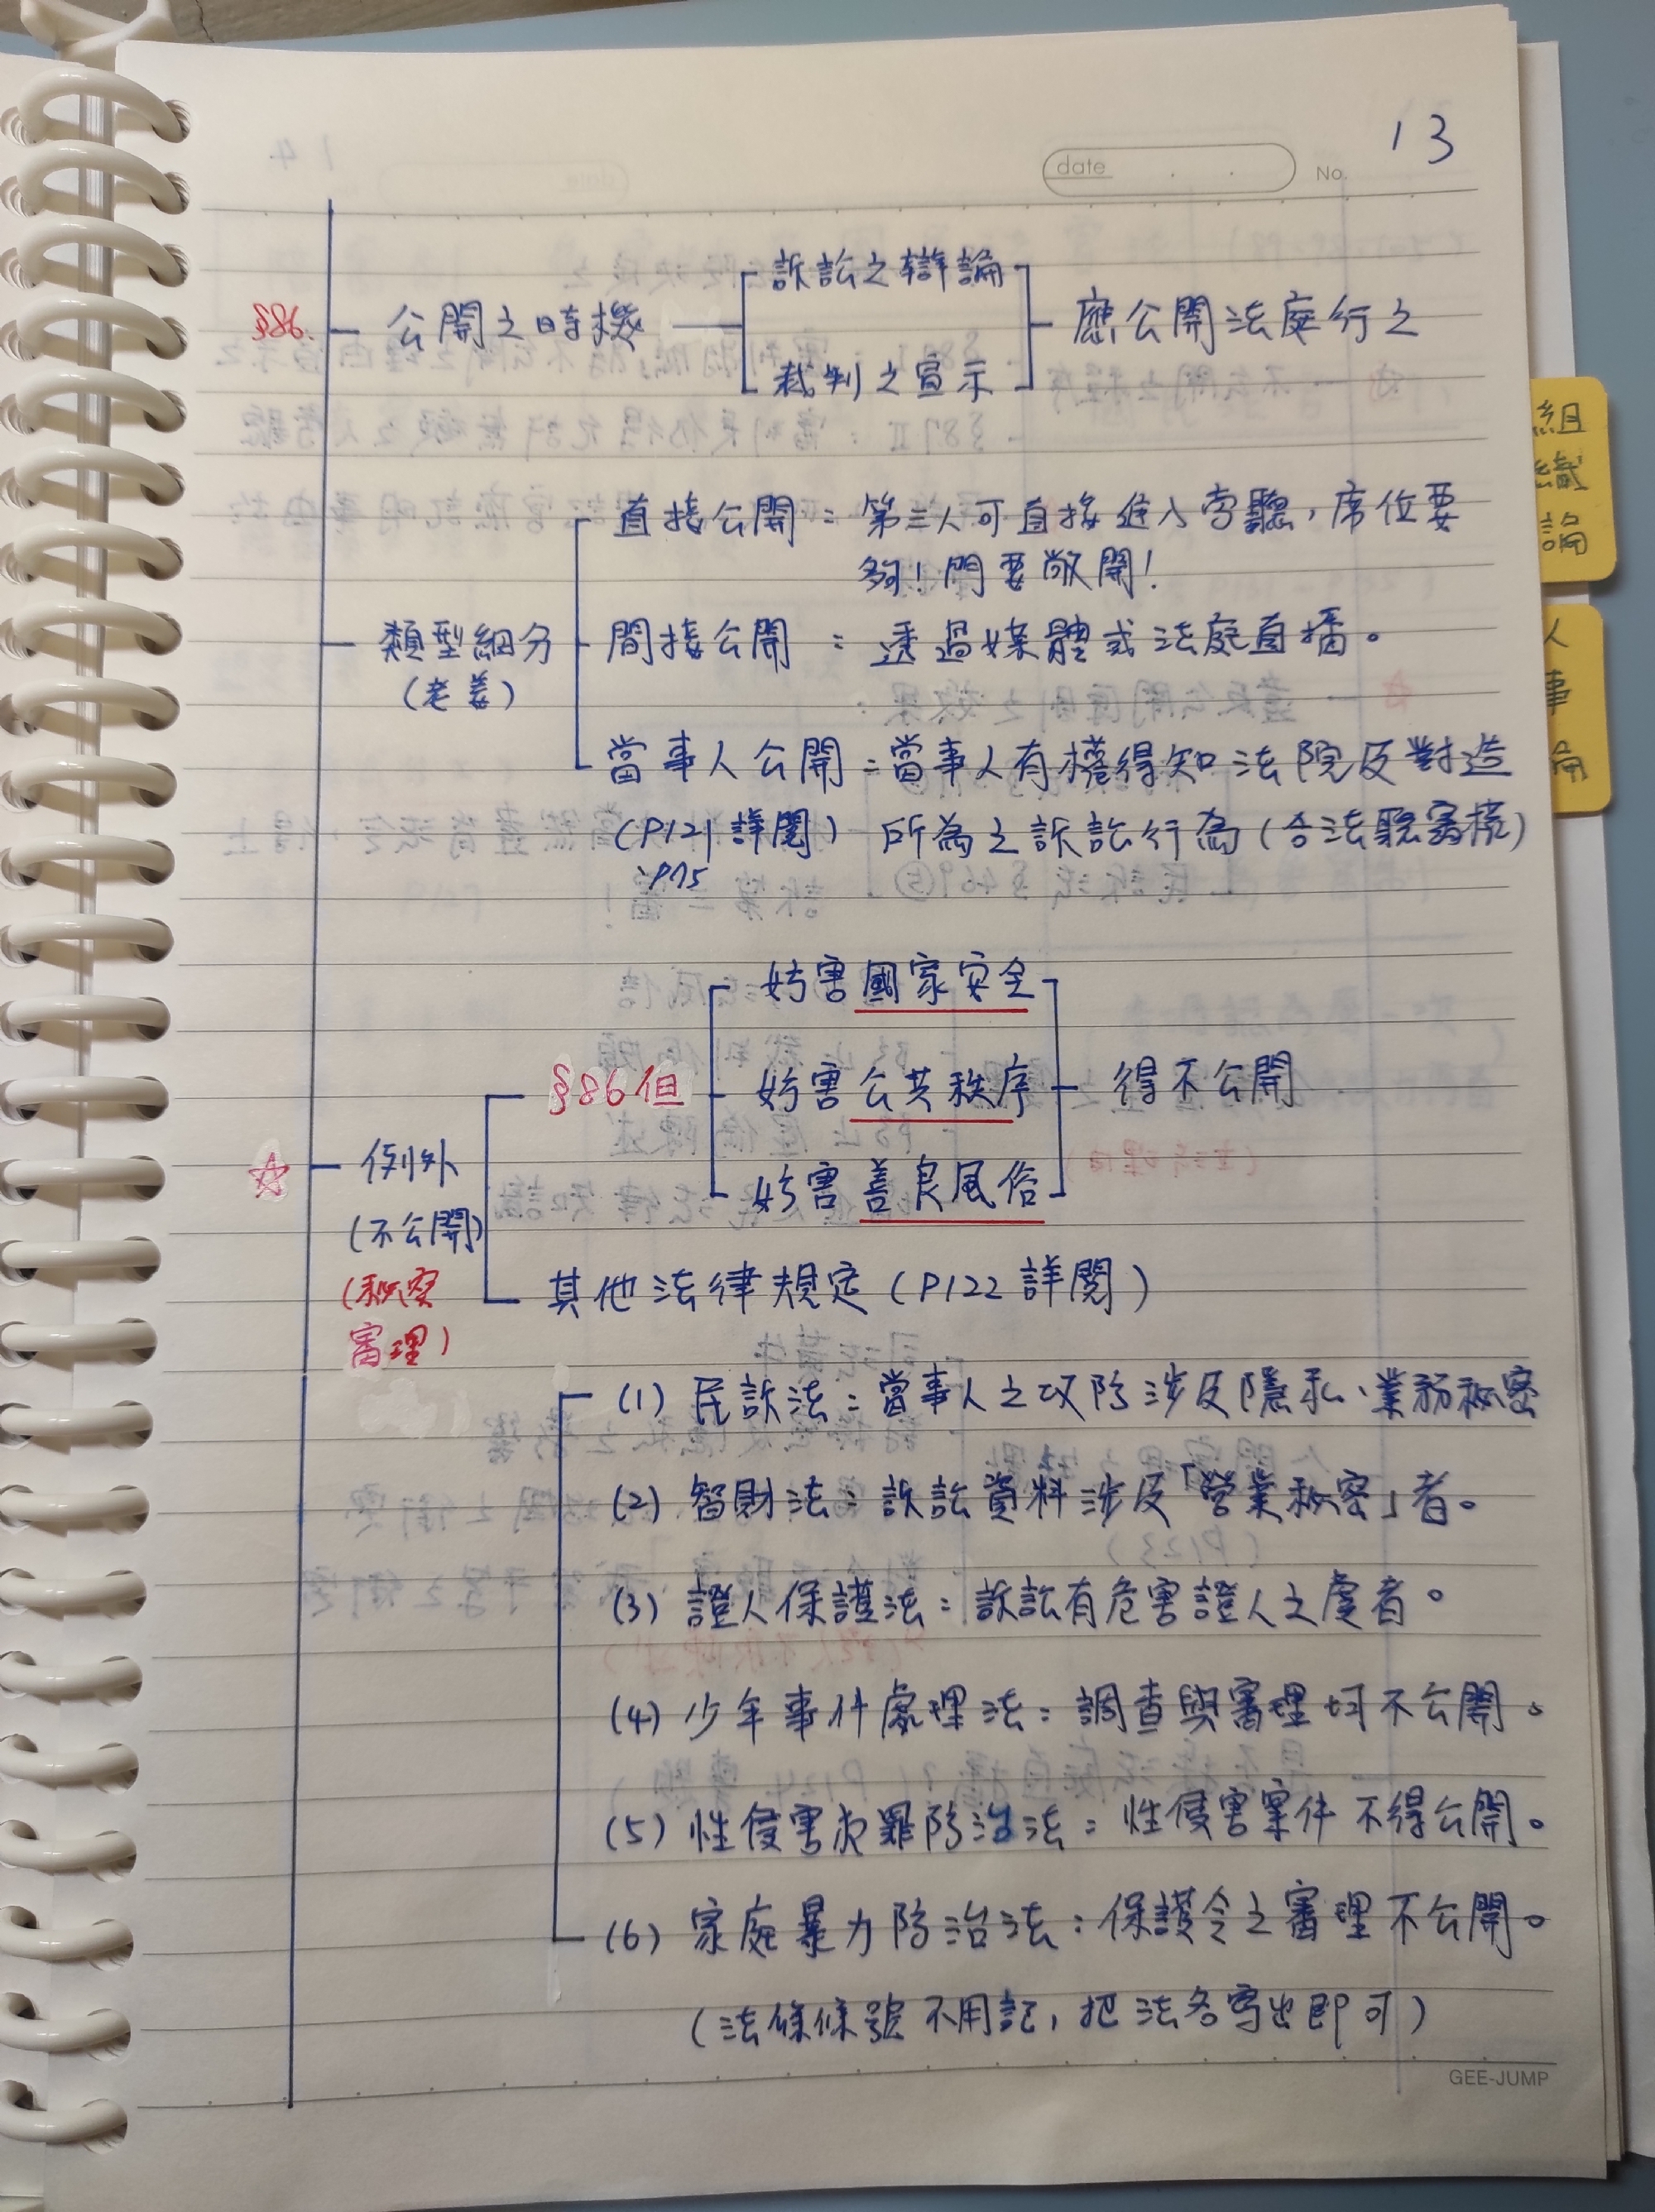 13
date
No.
訴訟之辯論
§86. 公開之時機 應公開法庭行之
裁判之宣示
組織論
直接公開：第三人可直接進入旁聽，席位要
夠！門要敞開！
類型細分 間接公開：透過媒體或法庭直播。
(老姜)
人事論
當事人公開：當事人有權得知法院及對造
(P121詳閱) 所為之訴訟行為(合法聽審權)
、P75
妨害國家安全
§86但 妨害公共秩序 得不公開
妨害善良風俗
☆ 例外
(不公開)
(秘密
審理)
其他法律規定(P122詳閱)
(1) 民訴法：當事人之攻防涉及隱私、業務秘密
(2) 智財法：訴訟資料涉及「營業秘密」者。
(3) 證人保護法：訴訟有危害證人之虞者。
(4) 少年事件處理法：調查與審理均不公開。
(5) 性侵害犯罪防治法：性侵害案件不得公開。
(6) 家庭暴力防治法：保護令之審理不公開。
(法條條號不用記，把法名寫出即可)
GEE-JUMP